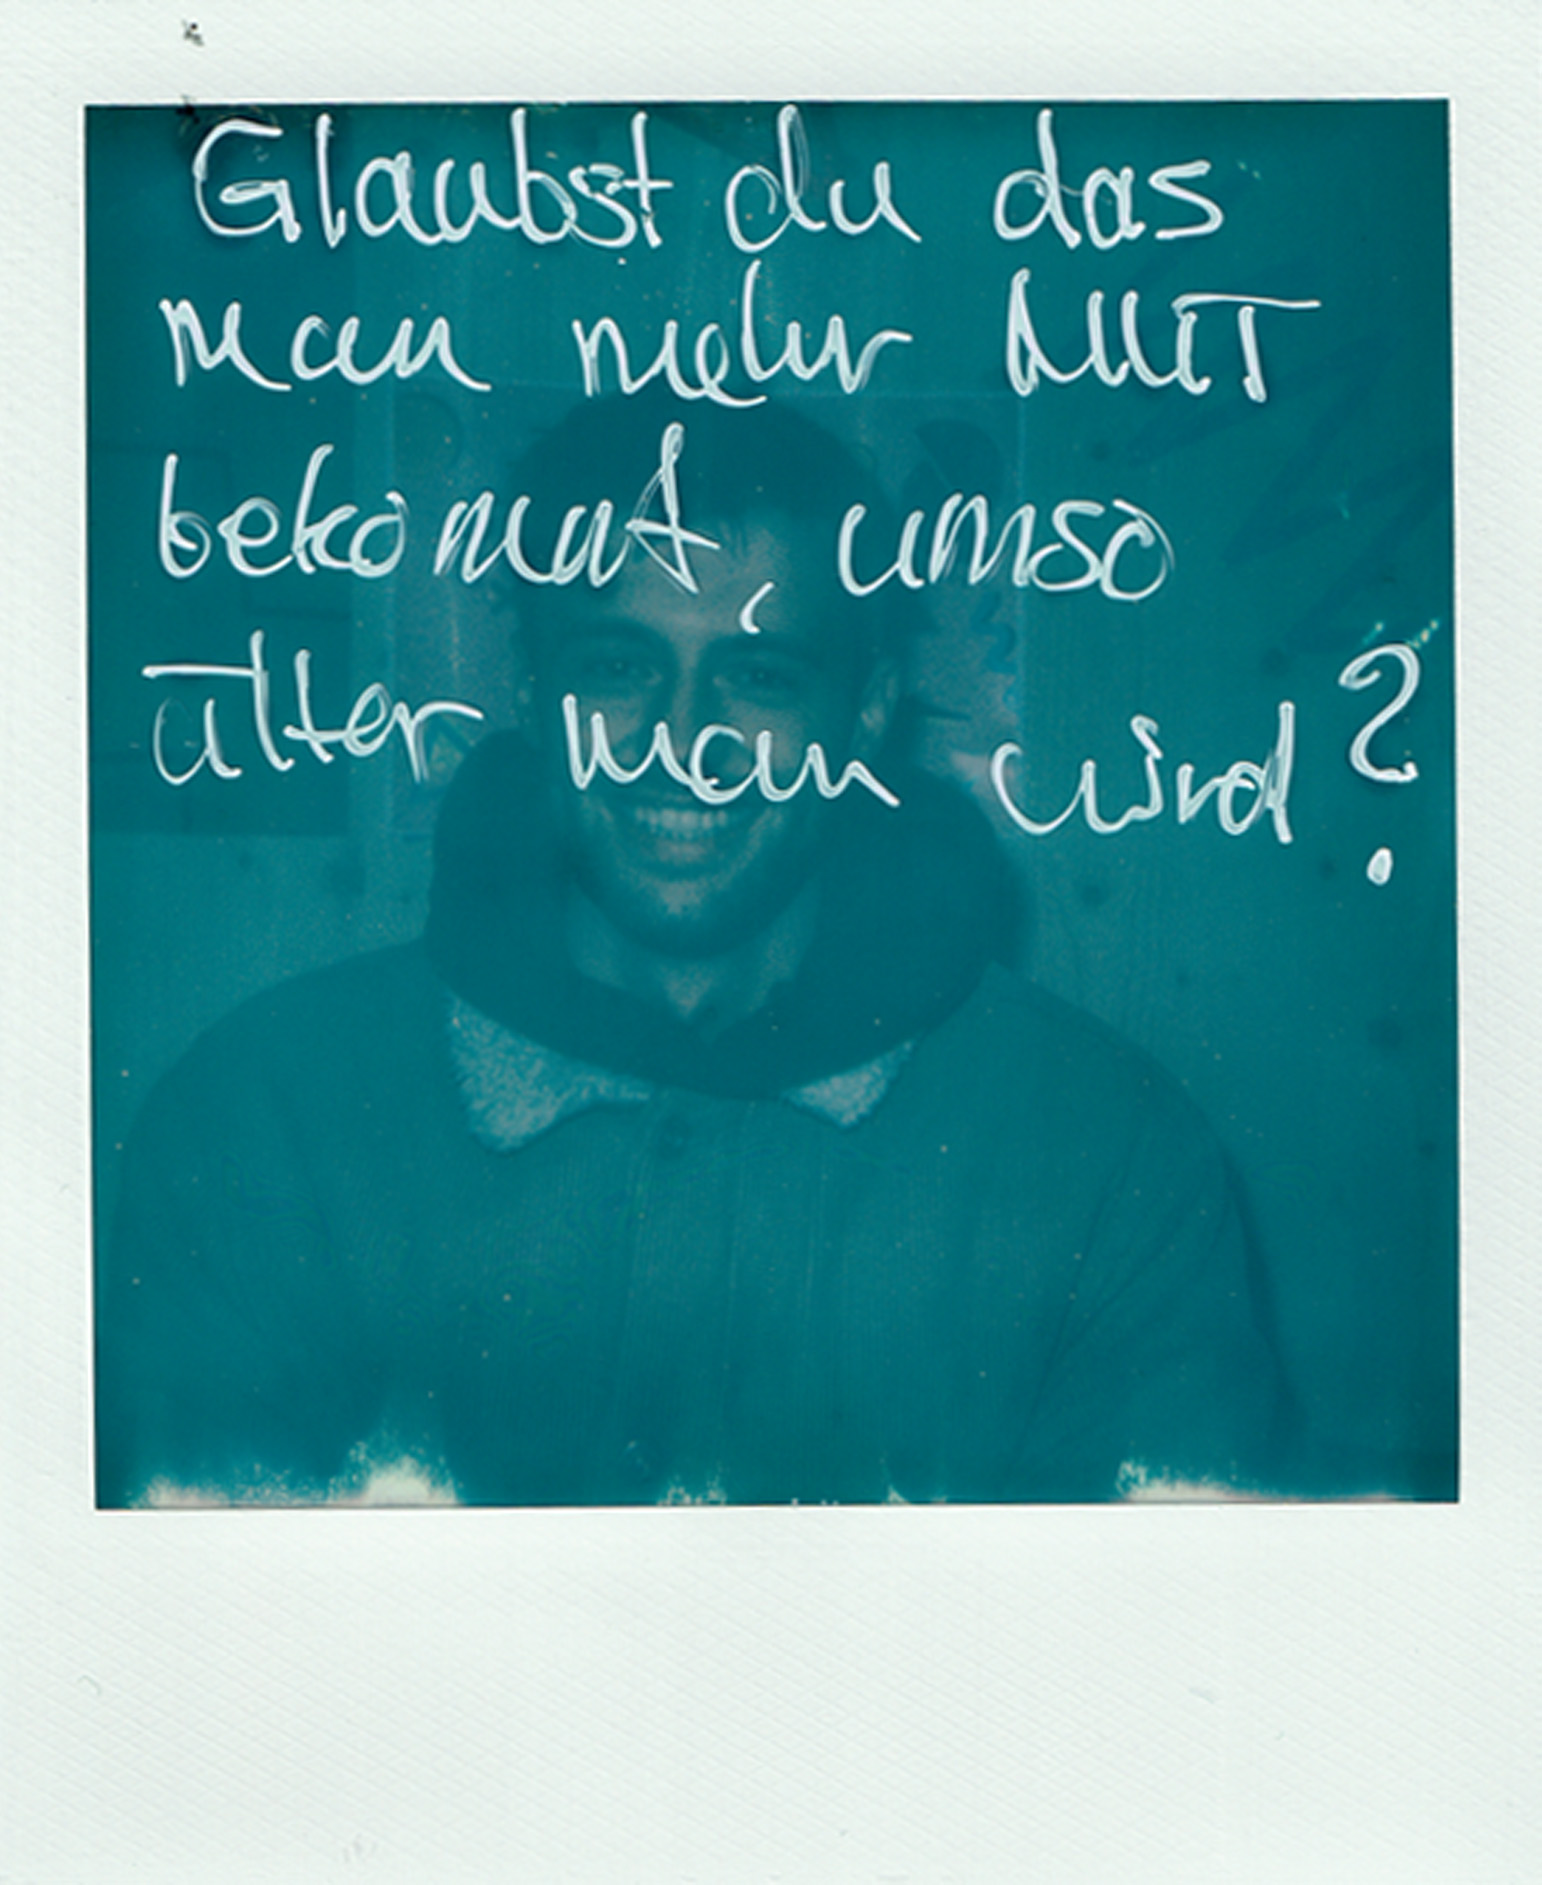 Glaubst du das
man mehr MUT
bekommt, umso
älter man wird?